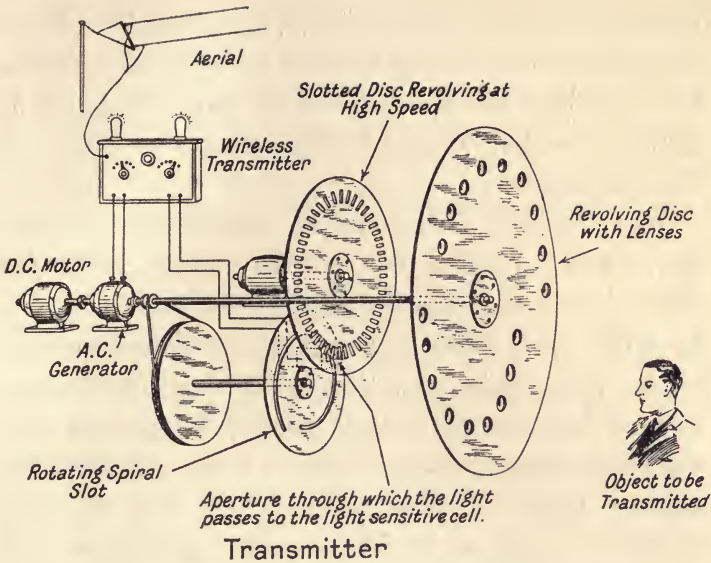 Aerial
Slotted Disc Revolving at
High Speed
Wireless
Transmitter
Revolving Disc
with Lenses
D.C. Motor
A.C.
Generator
Rotating Spiral
Slot
Aperture through which the light
passes to the light sensitive cell.
Object to be
Transmitted
Transmitter